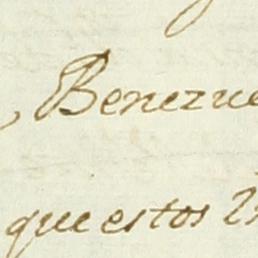 , Benezue
que estos